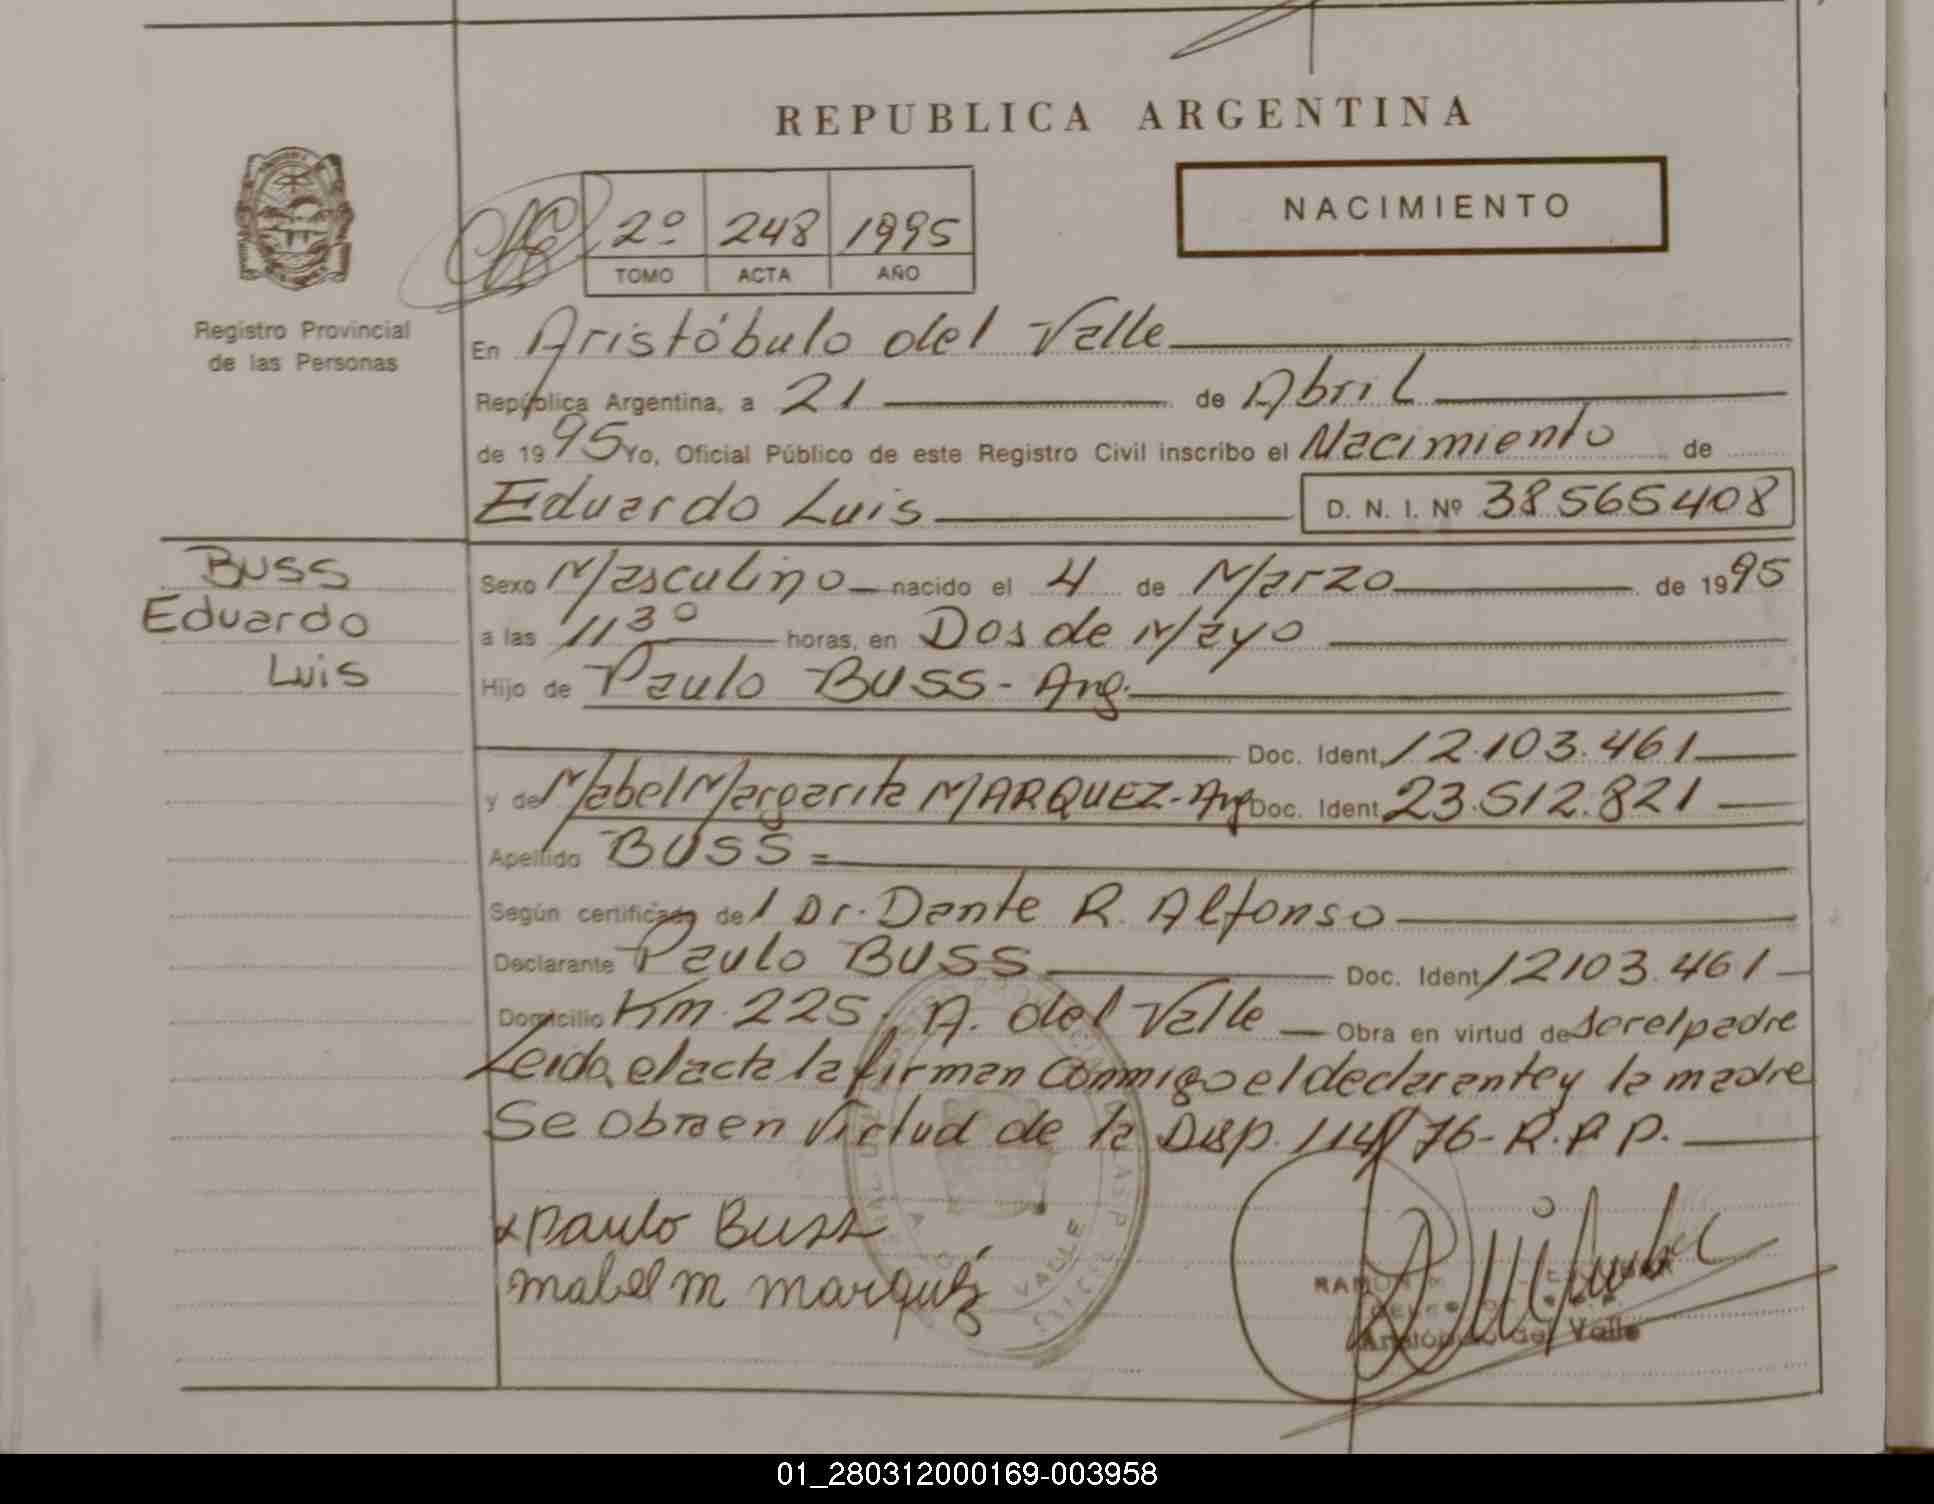 REPUBLICA ARGENTINA
NACIMIENTO
2º 248 1995
TOMO ACTA AÑO
Registro Provincial
de las Personas
En Aristóbulo del Valle
República Argentina, a 21 de Abril
de 1995 Yo, Oficial Público de este Registro Civil inscribo el Nacimiento de
Eduardo Luis D. N. I. Nº 38565408
BUSS
Eduardo
Luis
Sexo Masculino nacido el 4 de Marzo de 1995
a las 11 30 horas, en Dos de Mayo
Hijo de Paulo BUSS - Arg.
Doc. Ident. 12.103.461
y de Mabel Margarita MARQUEZ - Arg Doc. Ident. 23.512.821
Apellido BUSS =
Según certificado del Dr. Dante R. Alfonso
Declarante Paulo BUSS Doc. Ident. 12103.461
Domicilio Km. 225, A. del Valle Obra en virtud de ser el padre
Leida el acta la firman conmigo el declarante y la madre
Se obra en virtud de la Disp. 114/76 - R.P.P.
x Paulo Buss
Mabel M Marquéz
VALLE
RAMON
Aristóbulo del Valle
01_280312000169-003958